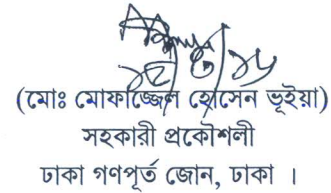 (মোঃ মোফাজ্জেল হোসেন ভূইয়া)
সহকারী প্রকৌশলী
ঢাকা গণপূর্ত জোন, ঢাকা ।